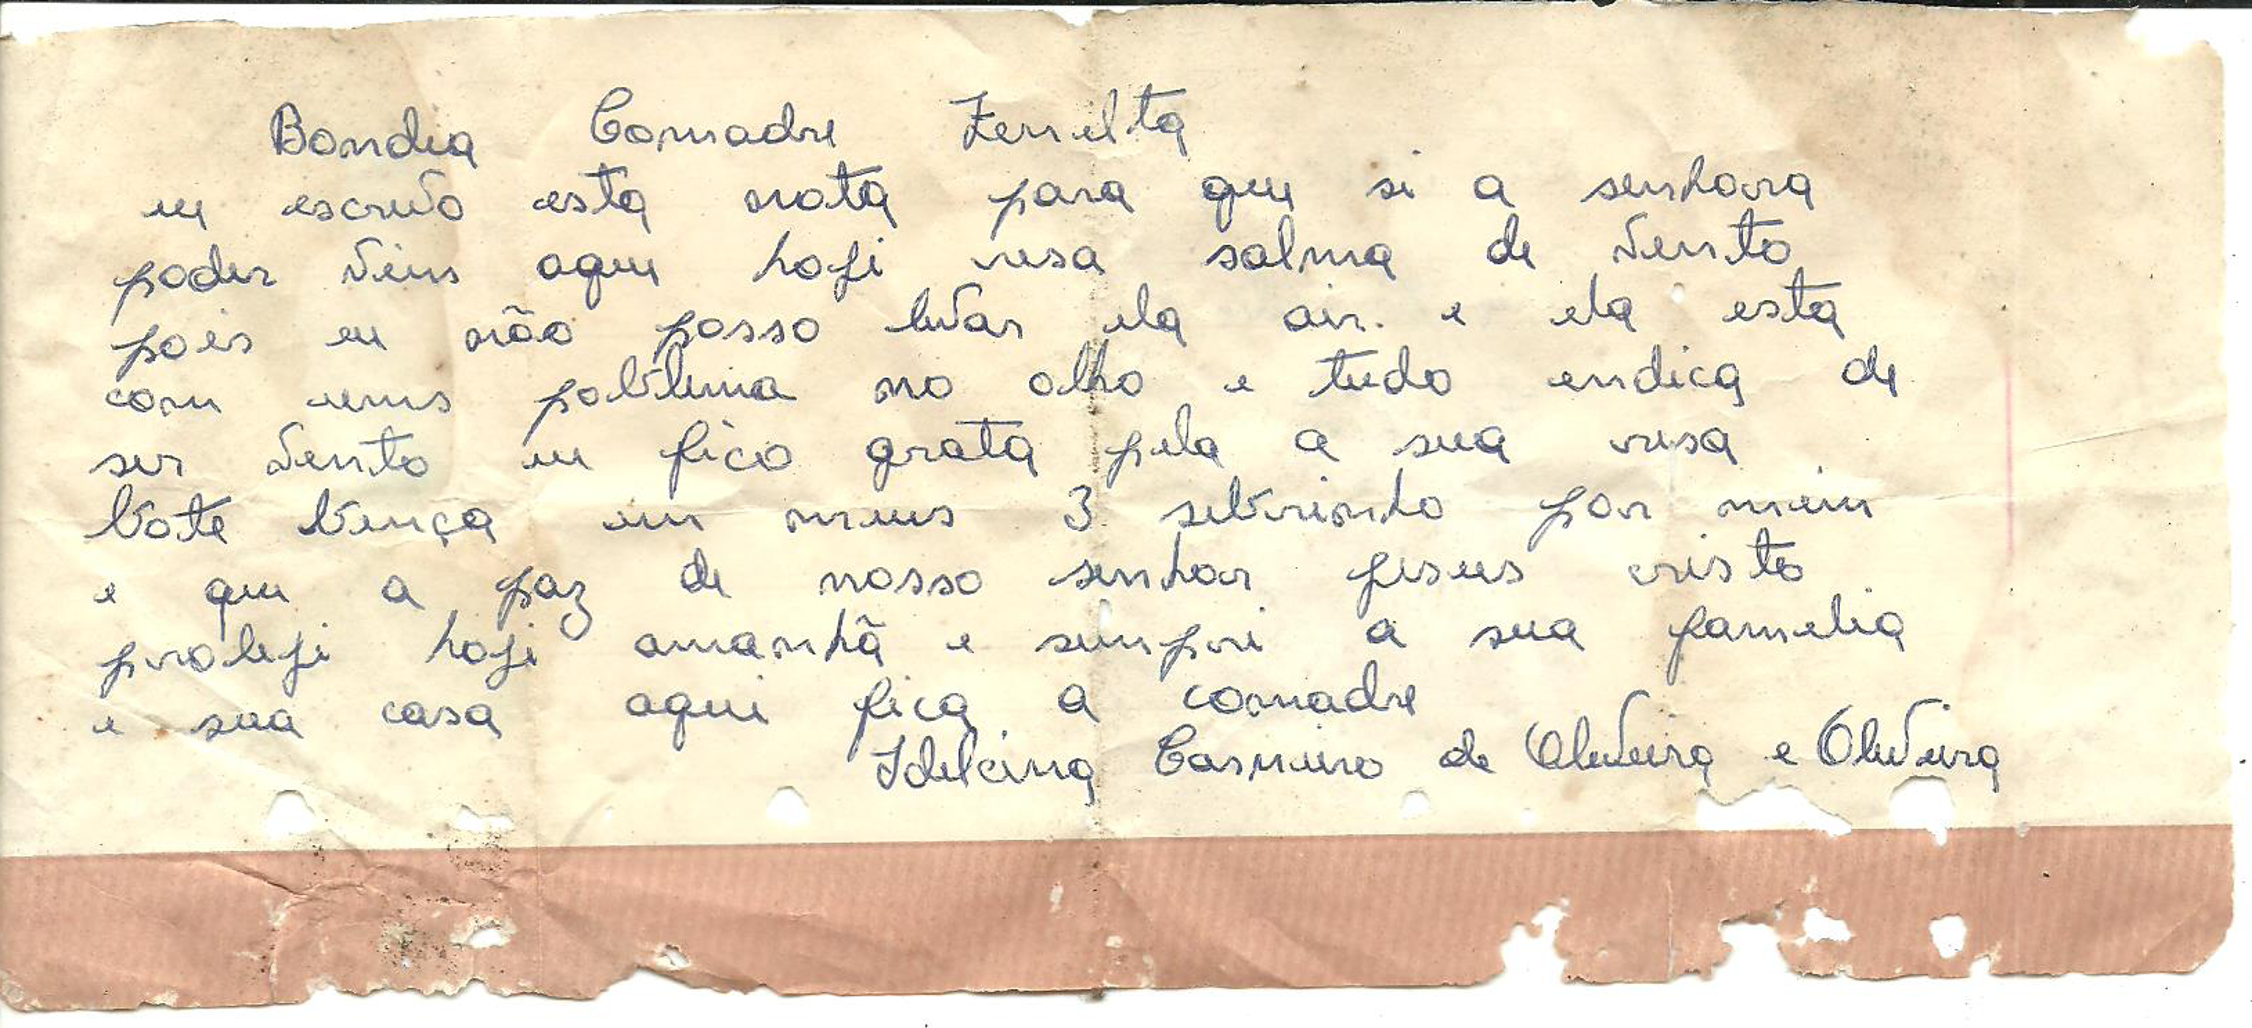 Bondia Comadre Zenelta
eu escrevo esta nota para que si a senhora
poder veins aque hoji resa salma de vento
pois eu não posso levar ela air. e ela esta
com ums poblema no olho e tudo endica de
ser vento eu fico grata pela a sua resa
bote bença em meus 3 sebrinho por mim
e que a paz de nosso senhor jesus cristo
proleji hoji amanhã e sempri a sua famelia
e sua casa aqui fica a comadre
Idelcina Casmiro de Oliveira e Oliveira